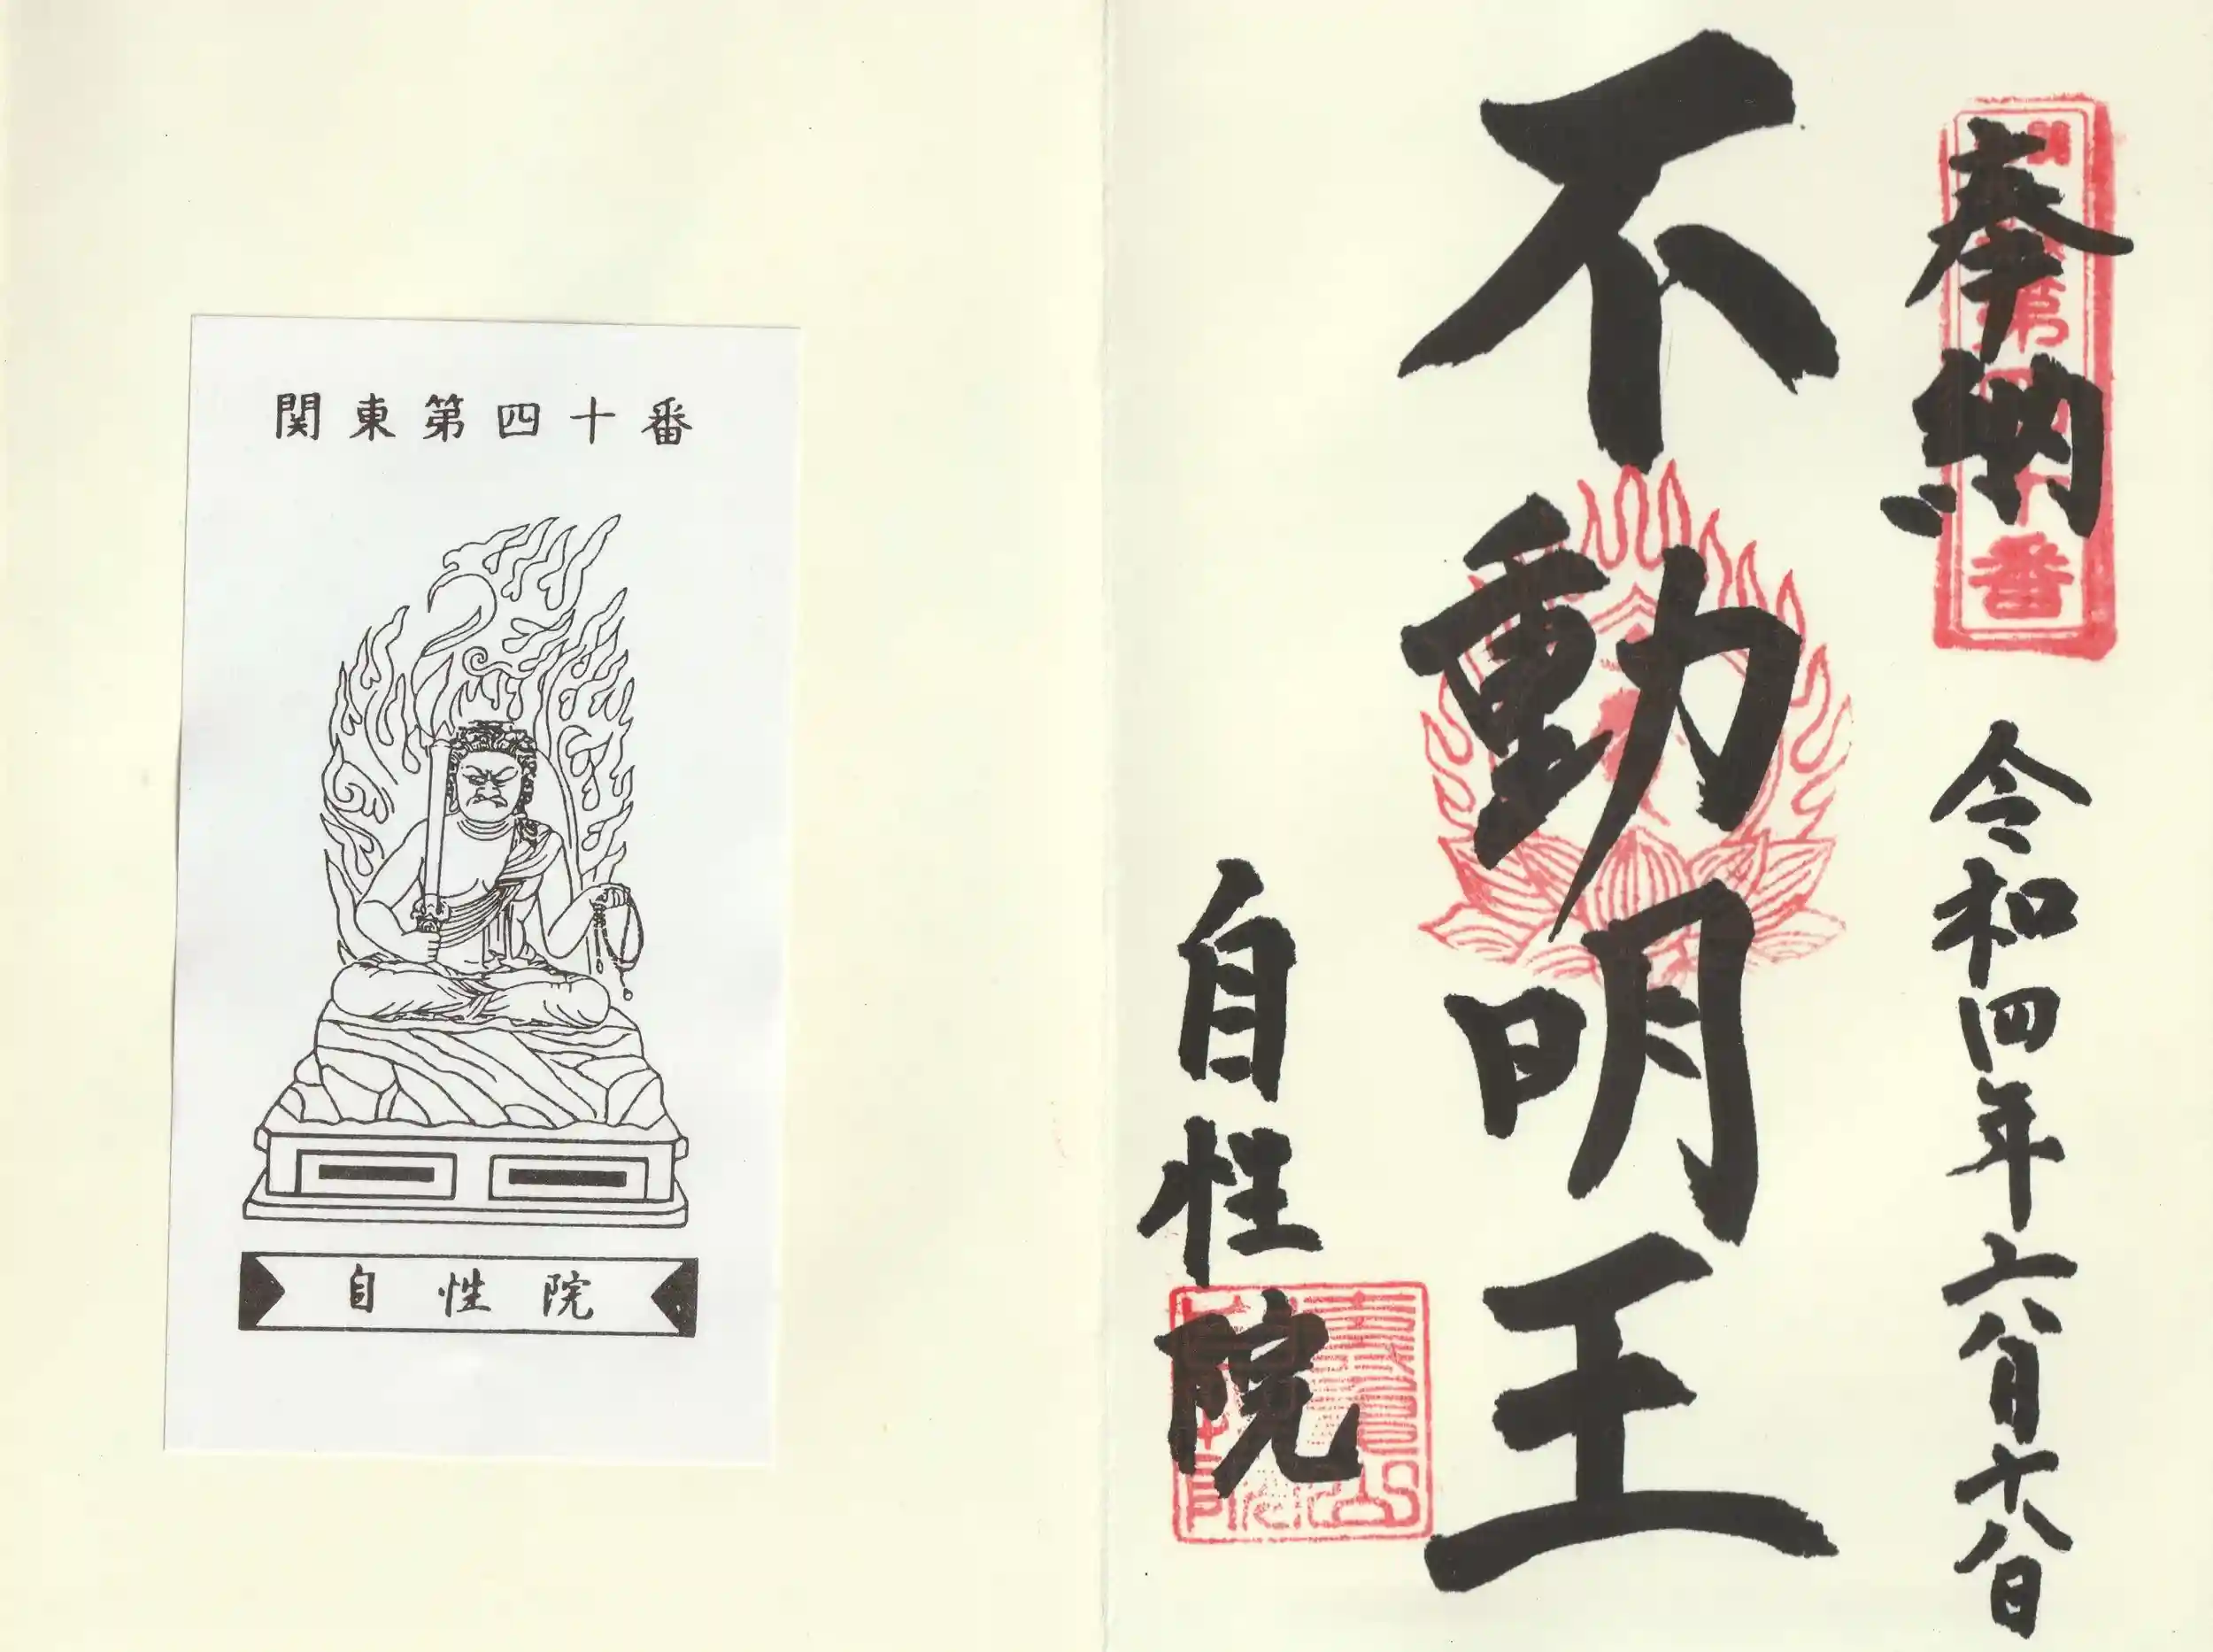 奉納
令和四年六月十八日
不動明王
自性院
第
番
関東第四十番
自性院